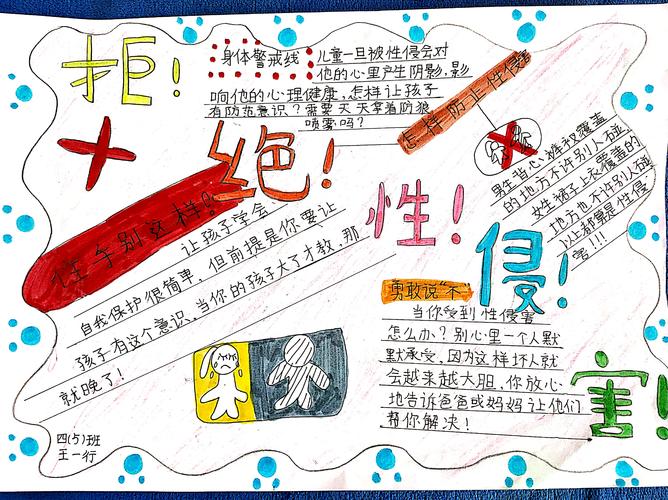 拒！
绝！
性！
侵！
害！
身体警戒线
儿童一旦被性侵会对
他的心里产生阴影，影
响他的心理健康，怎样让孩子
有防范意识？需要天天拿着防狼
喷雾吗？
怎样防止性侵害
男生背心裤衩覆盖
的地方不许别人碰
女生裙子上衣覆盖的
地方也不许别人碰
以上都算是性侵
害!!!
住手别这样？
让孩子学会
自我保护很简单，但前提是你要让
孩子有这个意识，当你的孩子大了才教，那
就晚了！
勇敢说“不”
当你受到性侵害
怎么办？别心里一个人默
默承受，因为这样坏人就
会越来越大胆，你放心
地告诉爸爸或妈妈让他们
帮你解决！
四(5)班
王一行